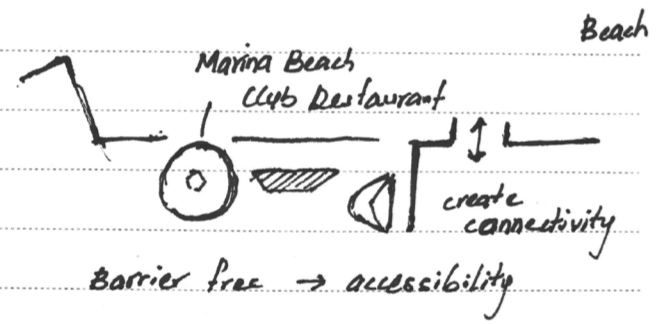 Beach
Marina Beach
Club Restaurant
create
connectivity
Barrier free → accessibility